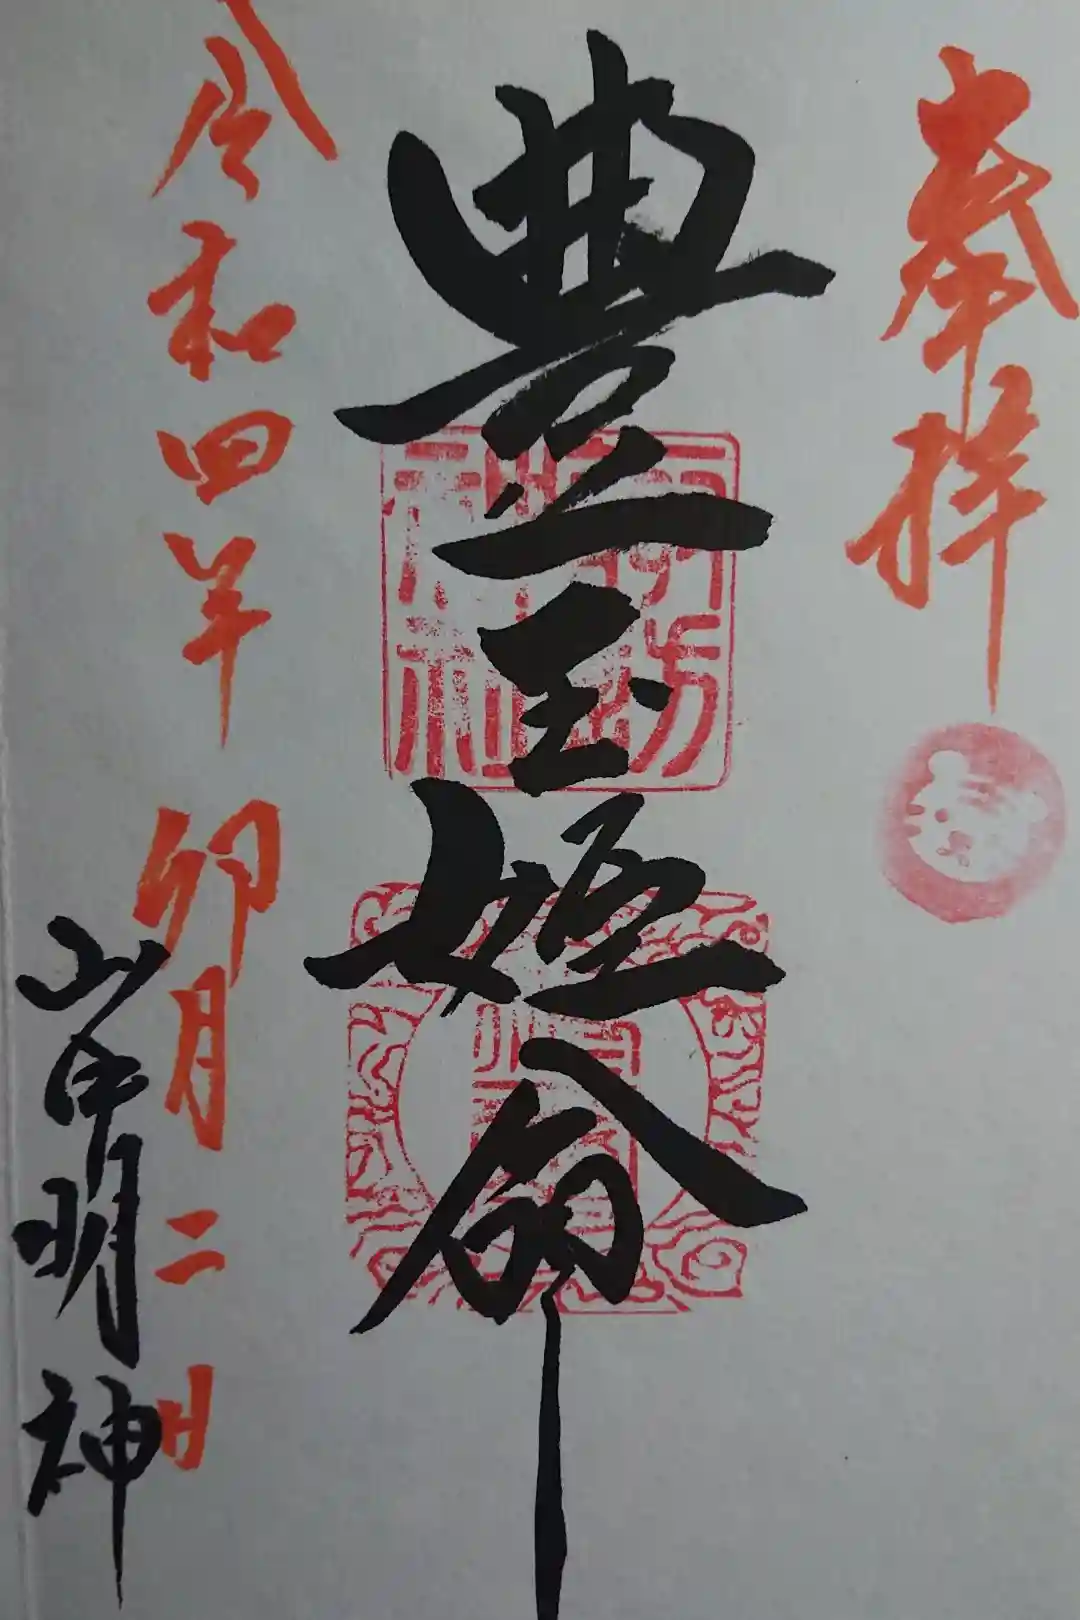 奉拝
豊玉姫命
令和四年 卯月二日
山中明神